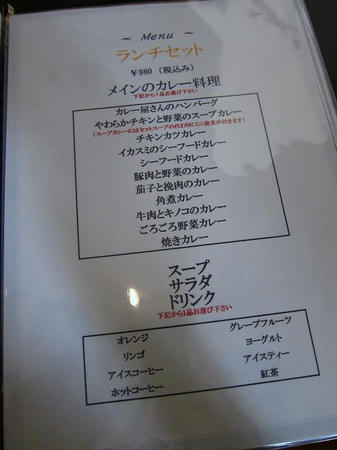 ～ Menu ～
ランチセット
￥980 （税込み）
メインのカレー料理
下記から1品お選び下さい
カレー屋さんのハンバーグ
やわらかチキンと野菜のスープカレー
(スープカレーにはセットスープの代わりにミニ前菜が付きます)
チキンカツカレー
イカスミのシーフードカレー
シーフードカレー
豚肉と野菜のカレー
茄子と挽肉のカレー
角煮カレー
牛肉とキノコのカレー
ごろごろ野菜カレー
焼きカレー
スープ
サラダ
ドリンク
下記から1品お選び下さい
オレンジ グレープフルーツ
リンゴ ヨーグルト
アイスコーヒー アイスティー
ホットコーヒー 紅茶